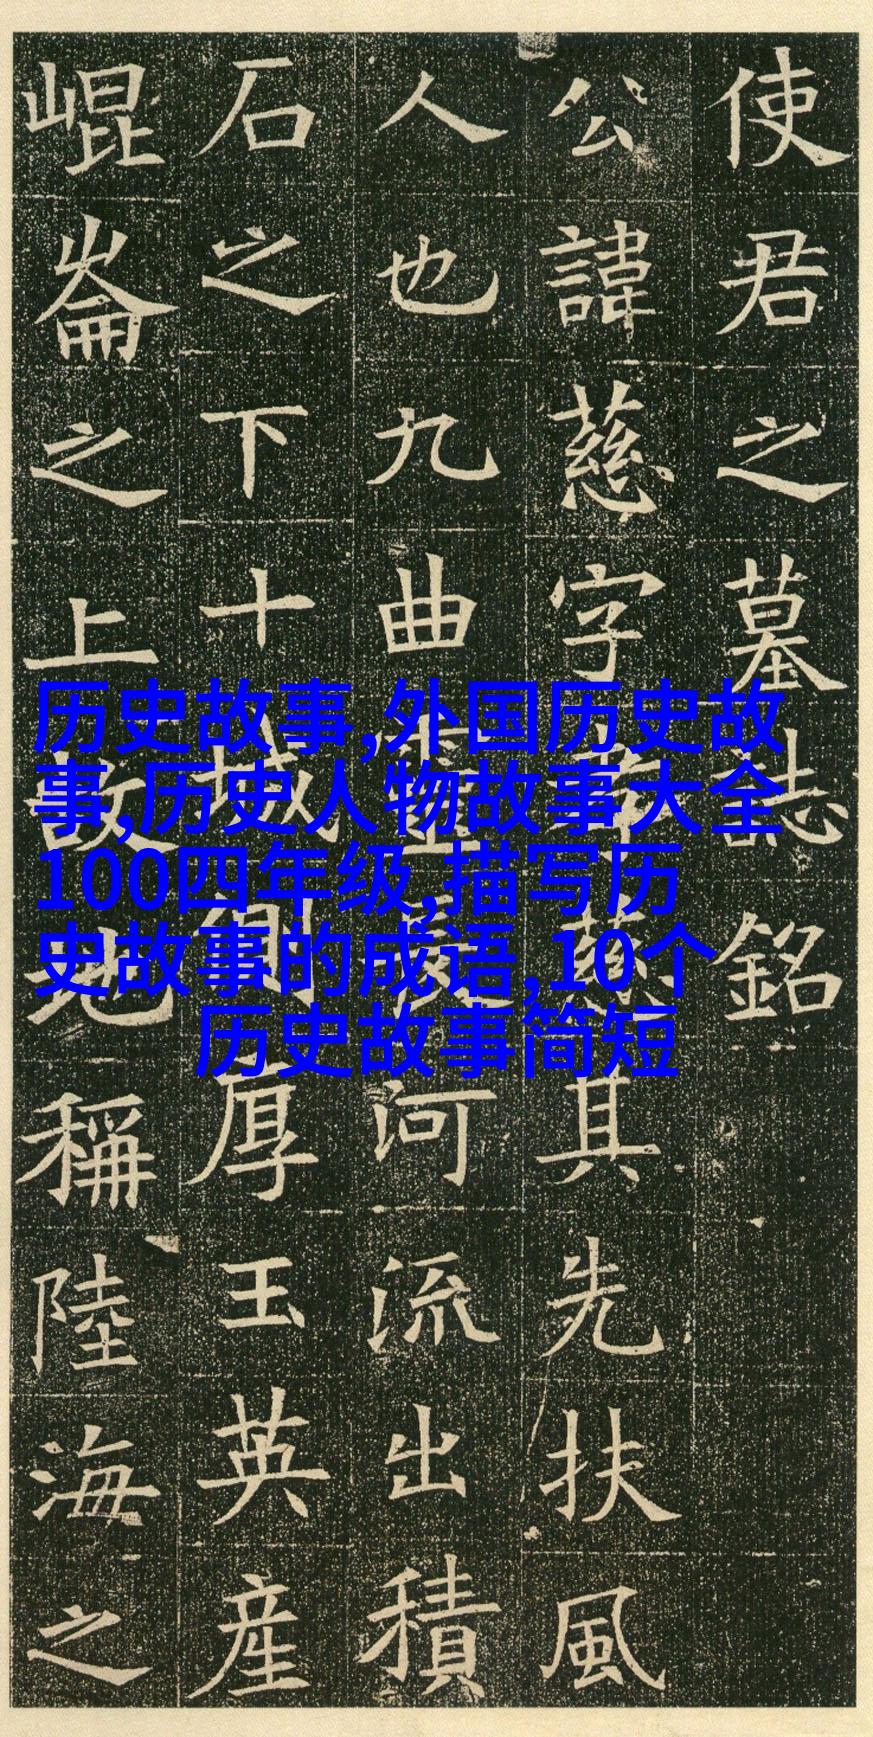 使君之墓誌銘
公諱慈字孝慈其先扶風
人也九曲靈長河流出積
石之下十城側厚玉英産
崐崙之上故地稱陸海之
历史故事,外国历史故
事,历史人物故事大全
100四年级,描写历
史故事的成语,10个
历史故事简短